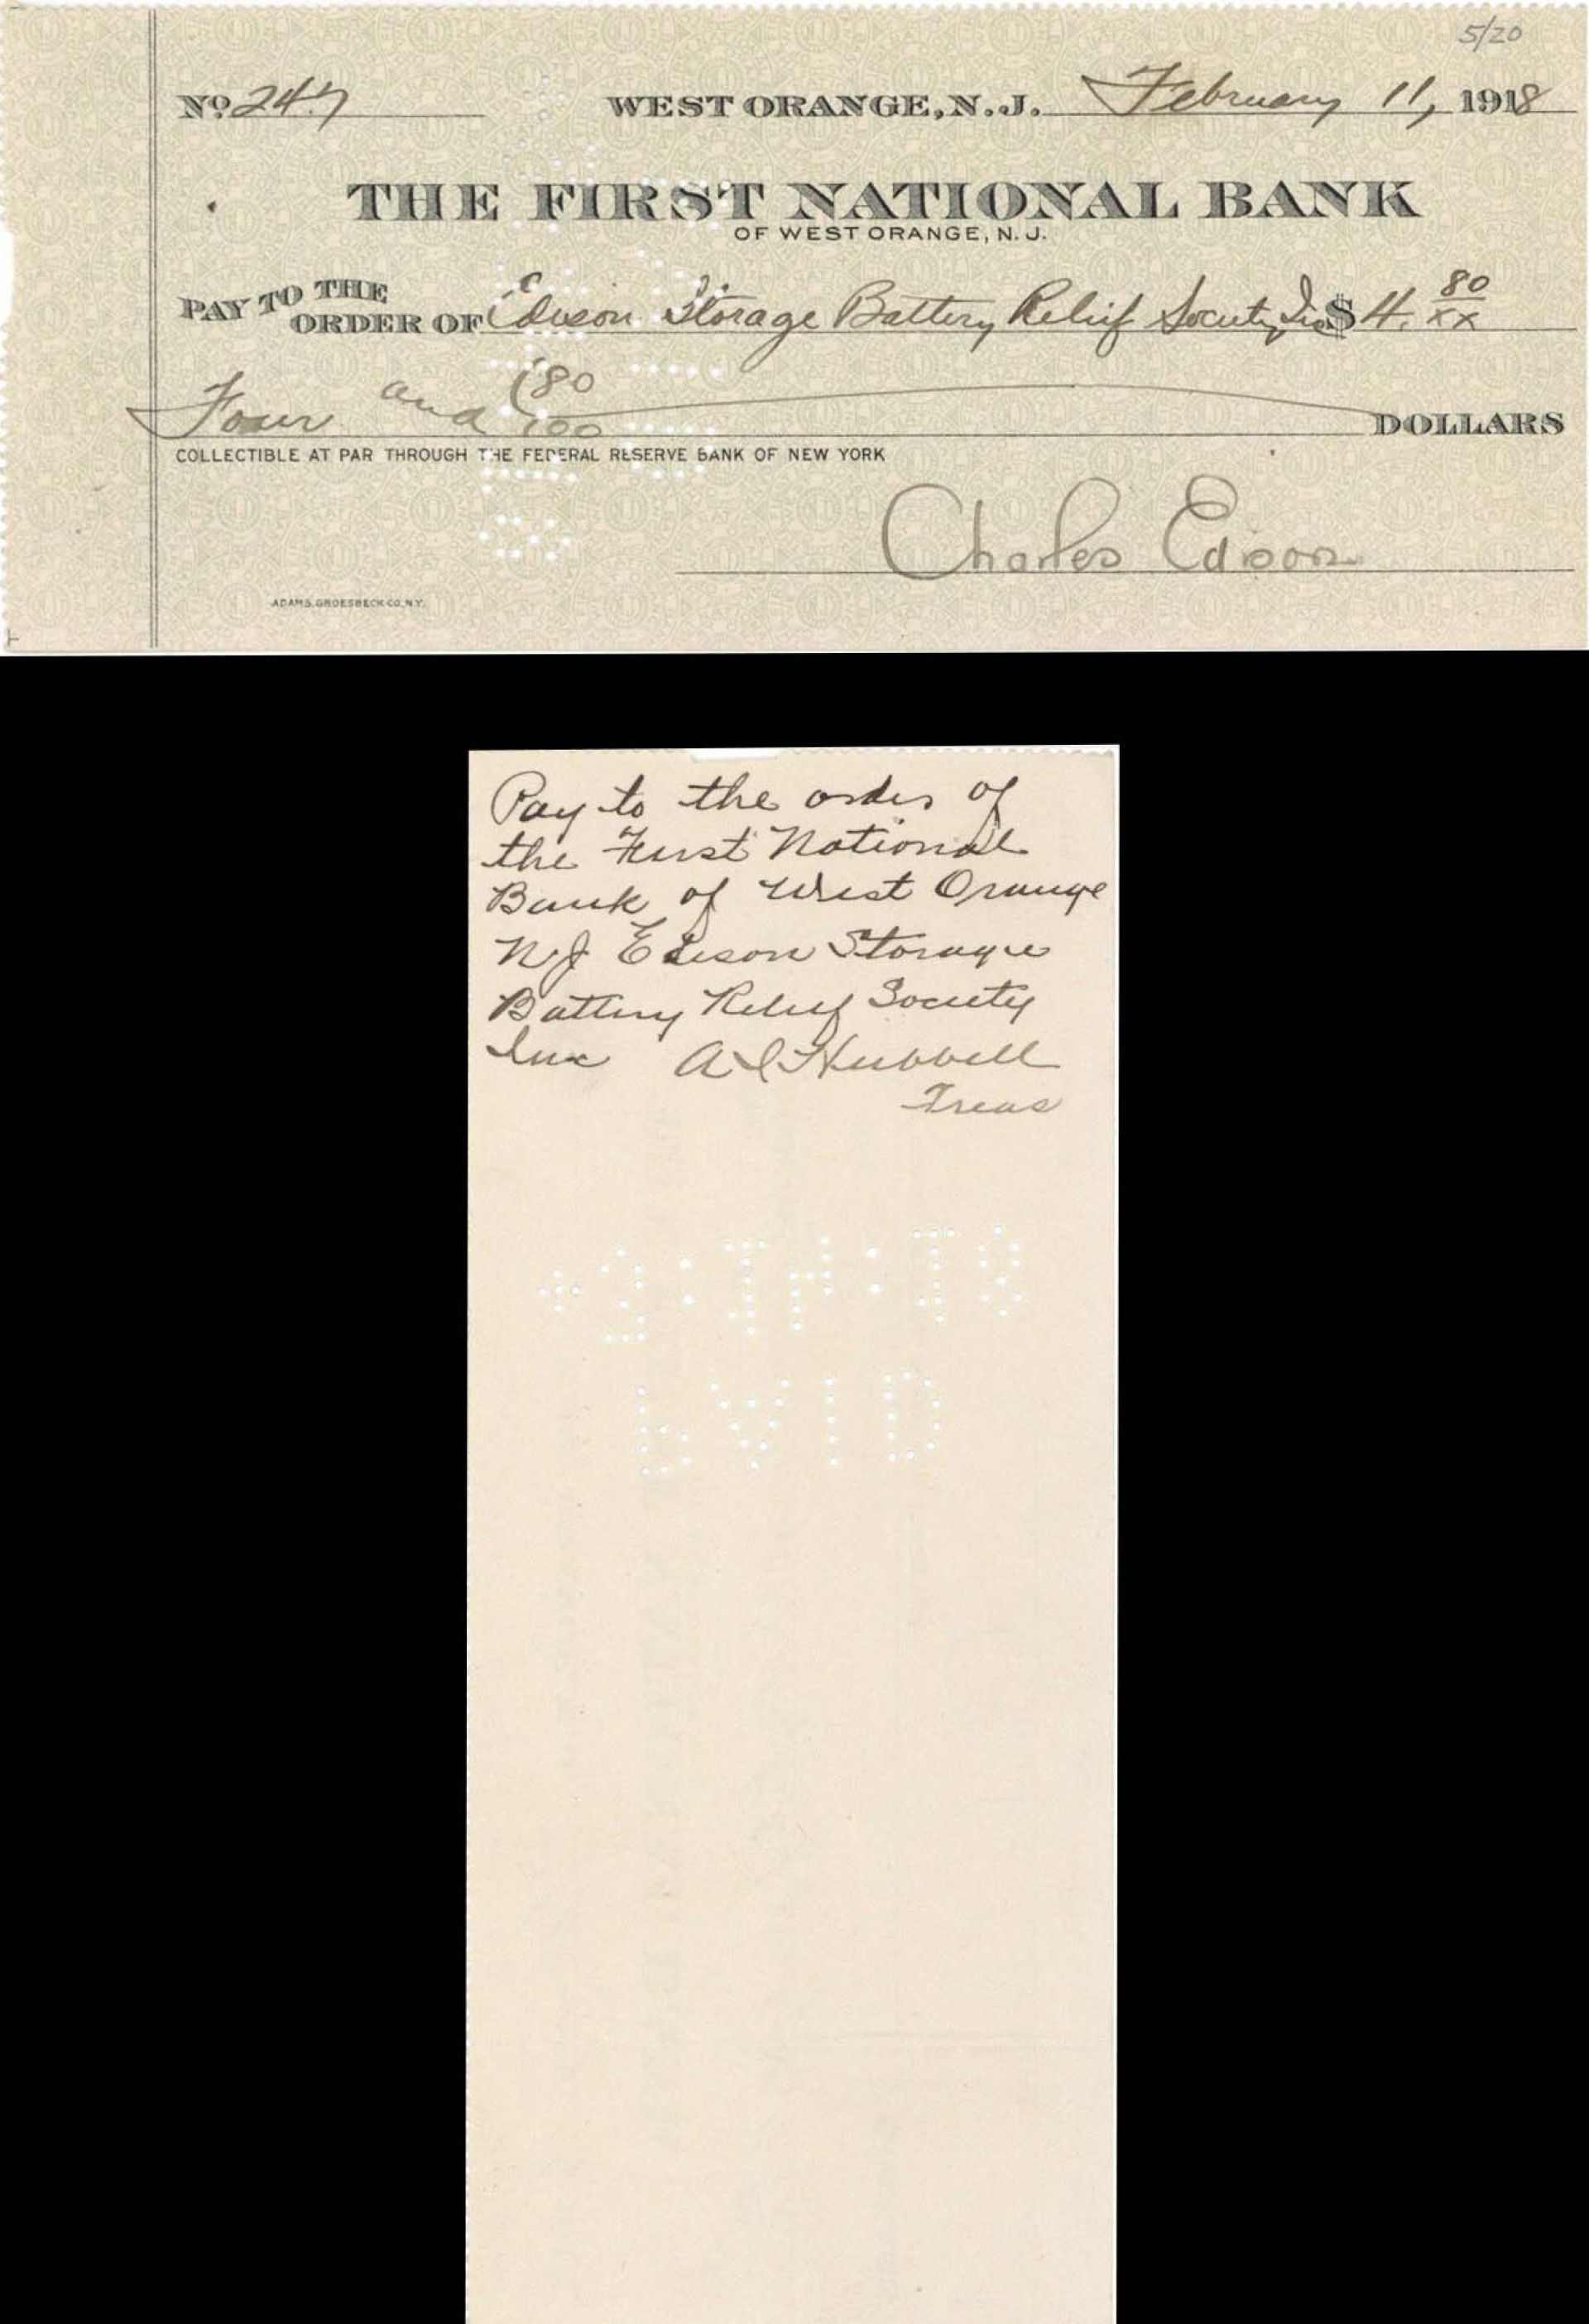 5/20
No 247 WEST ORANGE, N. J. February 11, 1918
THE FIRST NATIONAL BANK
OF WEST ORANGE, N. J.
PAY TO THE
ORDER OF Edison Storage Battery Relief Society Inc $ 4. 80/xx
Four and 80/100 DOLLARS
COLLECTIBLE AT PAR THROUGH THE FEDERAL RESERVE BANK OF NEW YORK
Charles Edison
ADAMS, GROESBECK CO. N.Y.
Pay to the order of
the First National
Bank of West Orange
N.J Edison Storage
Battery Relief Society
Inc A I Hubbell
Treas